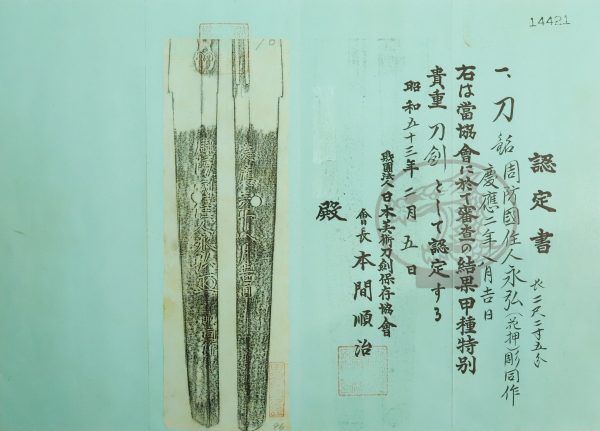 14421
認定書
一、刀 銘 周防國住人永弘(花押)彫同作
慶應二年八月吉日
長二尺二寸五分
右は當協會に於て審査の結果甲種特別
貴重刀剣として認定する
昭和五十三年二月五日
財團法人日本美術刀剣保存協會
會長 本間順治
殿